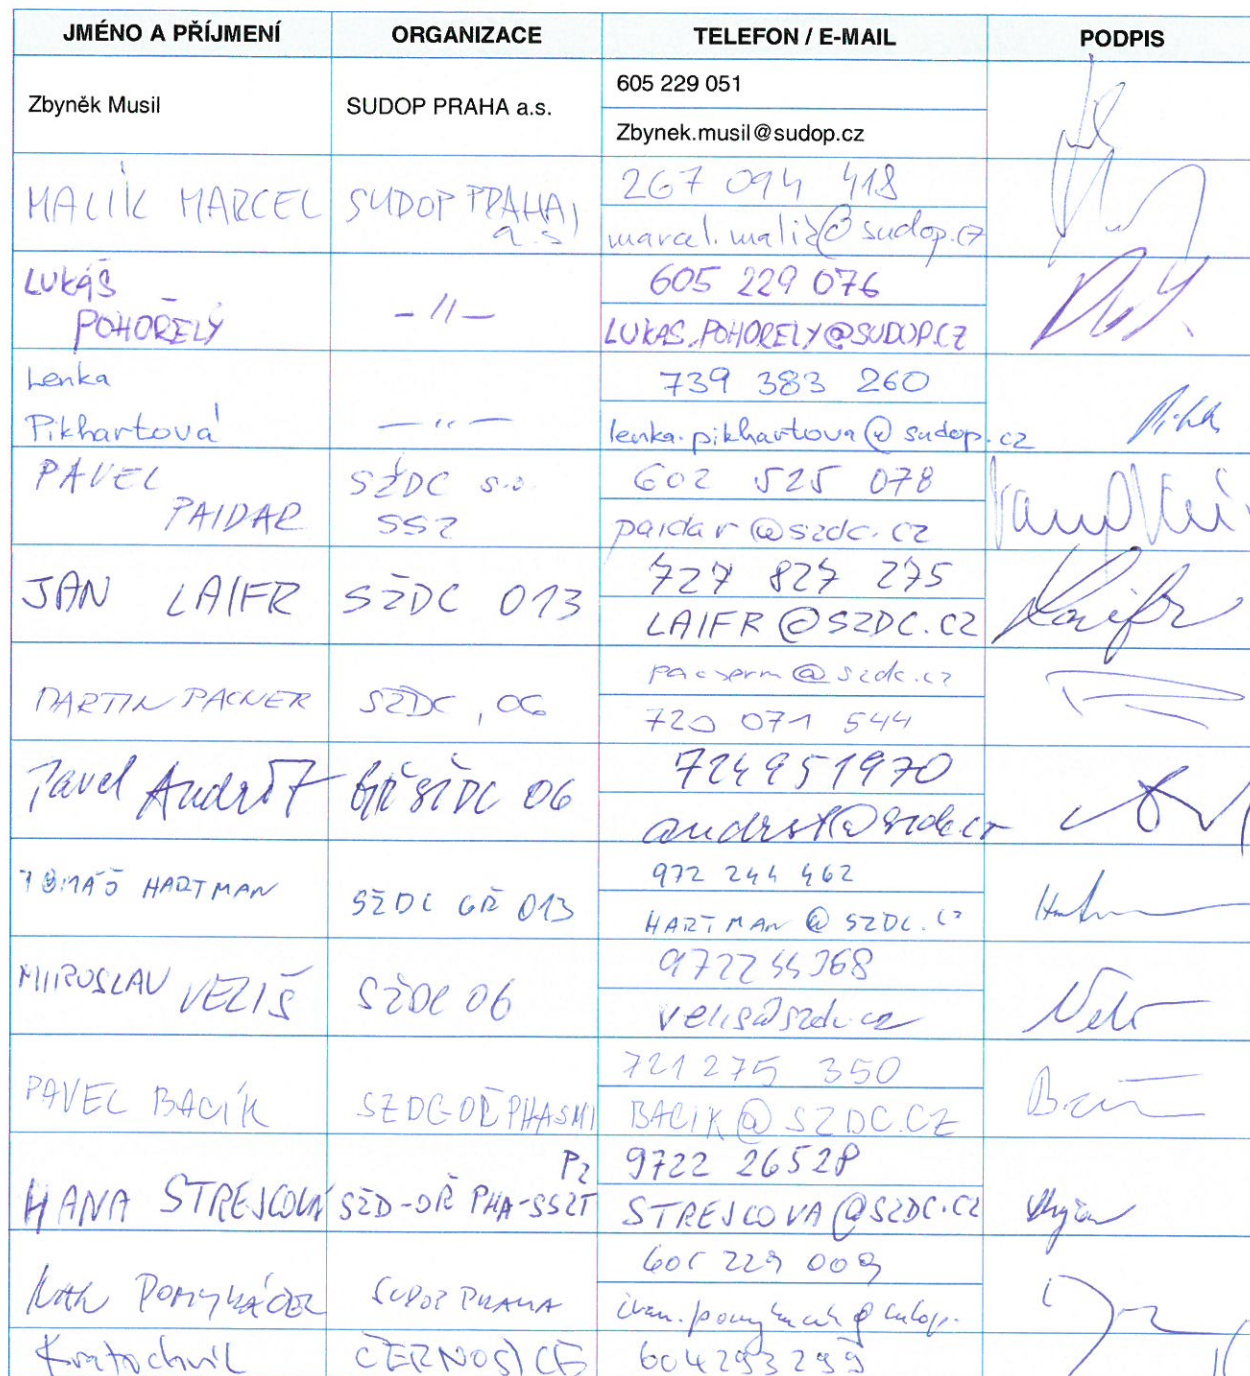 JMÉNO A PŘÍJMENÍ ORGANIZACE TELEFON / E-MAIL PODPIS
Zbyněk Musil SUDOP PRAHA a.s. 605 229 051
Zbynek.musil@sudop.cz
MALÍK MARCEL SUDOP PRAHA, a.s. 267 094 418
marcel.malik@sudop.cz
LUKÁŠ POHOŘELÝ -//- 605 229 076
LUKAS.POHORELY@SUDOP.CZ
Lenka Pikhartová -//- 739 383 260
lenka.pikhartova@sudop.cz
PAVEL PAIDAR SŽDC s.o. SSZ 602 525 078
paidar@szdc.cz
JAN LAIFR SŽDC 013 727 827 275
LAIFR@SZDC.CZ
Laifr
MARTIN PACNER SŽDC, 06 @szdc.cz
720 071 544
Pavel Andršt GŘ SŽDC 06 724951970
andrst@szdc.cz
TOMÁŠ HARTMAN SŽDC GŘ 013 972 244 462
HARTMAN@SZDC.CZ
MIROSLAV VELIŠ SŽDC 06 972244368
velis@szdc.cz
PAVEL BACÍK SŽDC-OŘ PHA SMI 721 275 350
BACIK@SZDC.CZ
HANA STREJCOVÁ SŽD-OŘ PHA-SSZT 9722 26528
STREJCOVA@SZDC.CZ
SUDOP PRAHA 605 229 009
Kratochvíl ČERNOŠICE 604293299